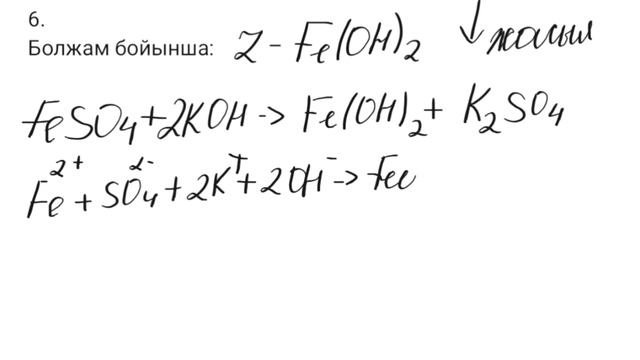 6.
Болжам бойынша: Z - Fe(OH)₂ ↓ жасыл
FeSO₄+2KOH -> Fe(OH)₂+ K₂SO₄
Fe²⁺ + SO₄²⁻ + 2K⁺ + 2OH⁻ -> Fee